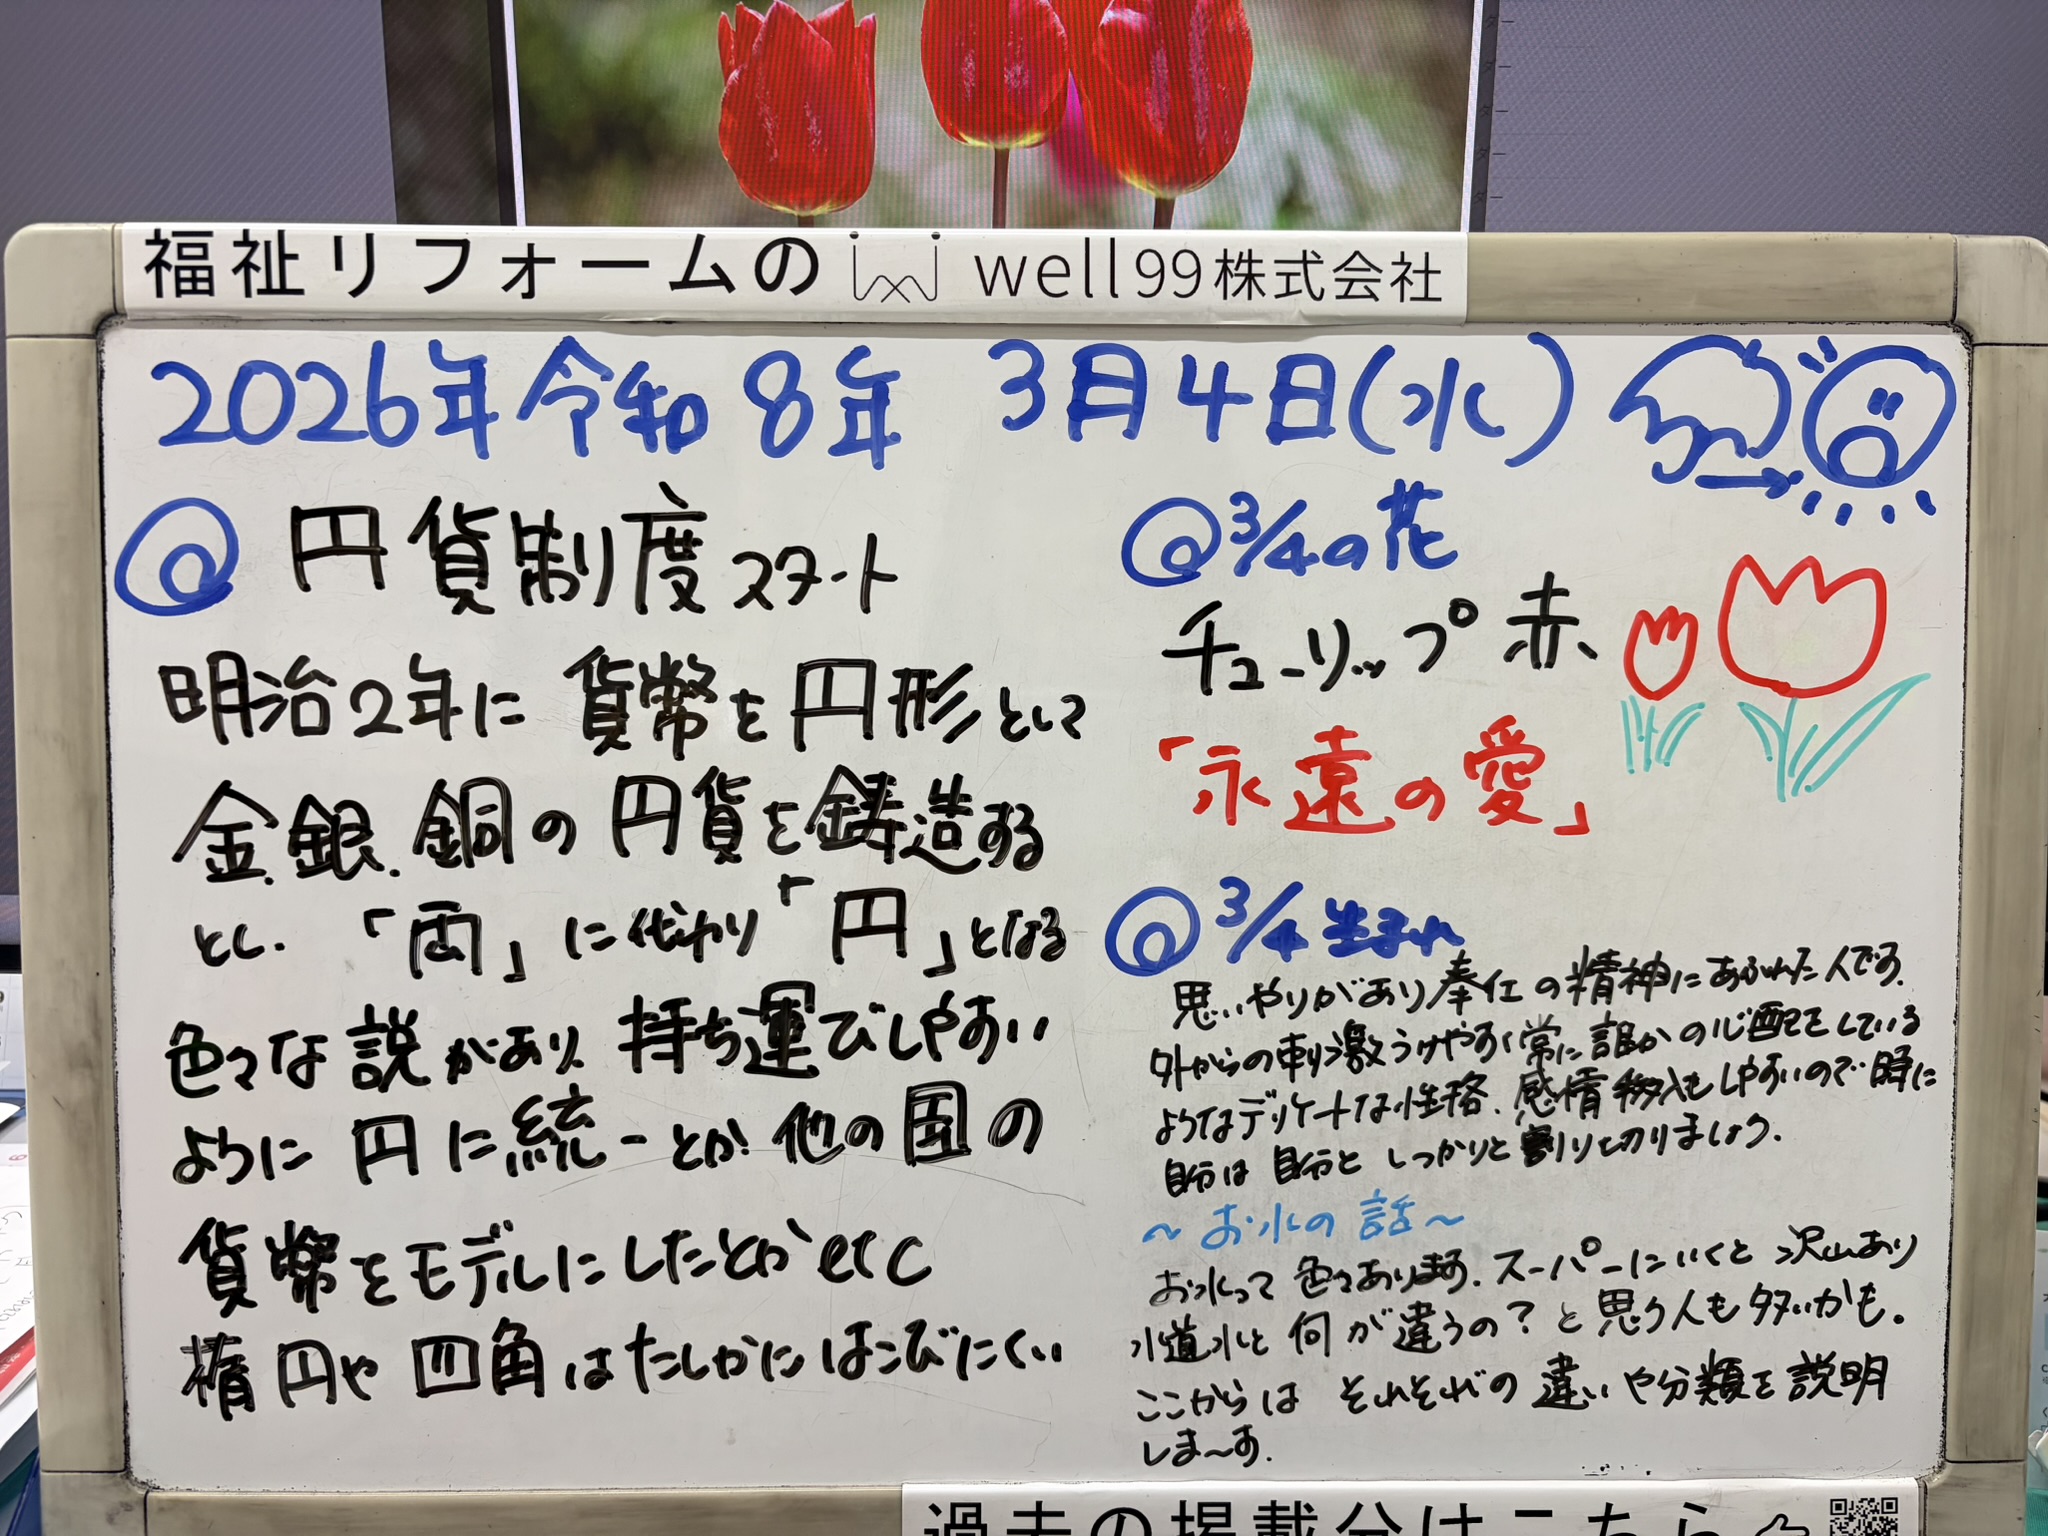 福祉リフォームの well99株式会社
2026年令和8年 3月4日(水)
円貨制度スタート
明治2年に貨幣を円形として
金.銀.銅の円貨を鋳造する
とし.「両」に代わり「円」となる
色々な説があり、持ち運びしやすい
ように円に統一とか.他の国の
貨幣をモデルにしたとかetc
楕円や四角はたしかにはこびにくい
3/4の花
チューリップ 赤
「永遠の愛」
3/4生まれ
思いやりがあり奉仕の精神にあふれた人です.
外からの刺激うけやすく常に誰かの心配をしている
ようなデリケートな性格.感情移入もしやすいので時に
自分は自分としっかりと割り切りましょう.
~お水の話~
お水って色々あります.スーパーにいくと沢山あり
水道水と何が違うの?と思う人も多いかも。
ここからはそれぞれの違いや分類を説明
しま~す.
過去の掲載分はこちら